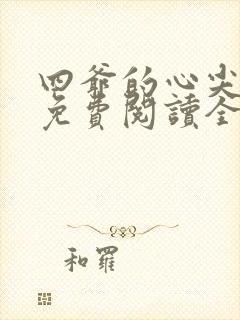 四爺的心尖
免費閱讀全
和羅